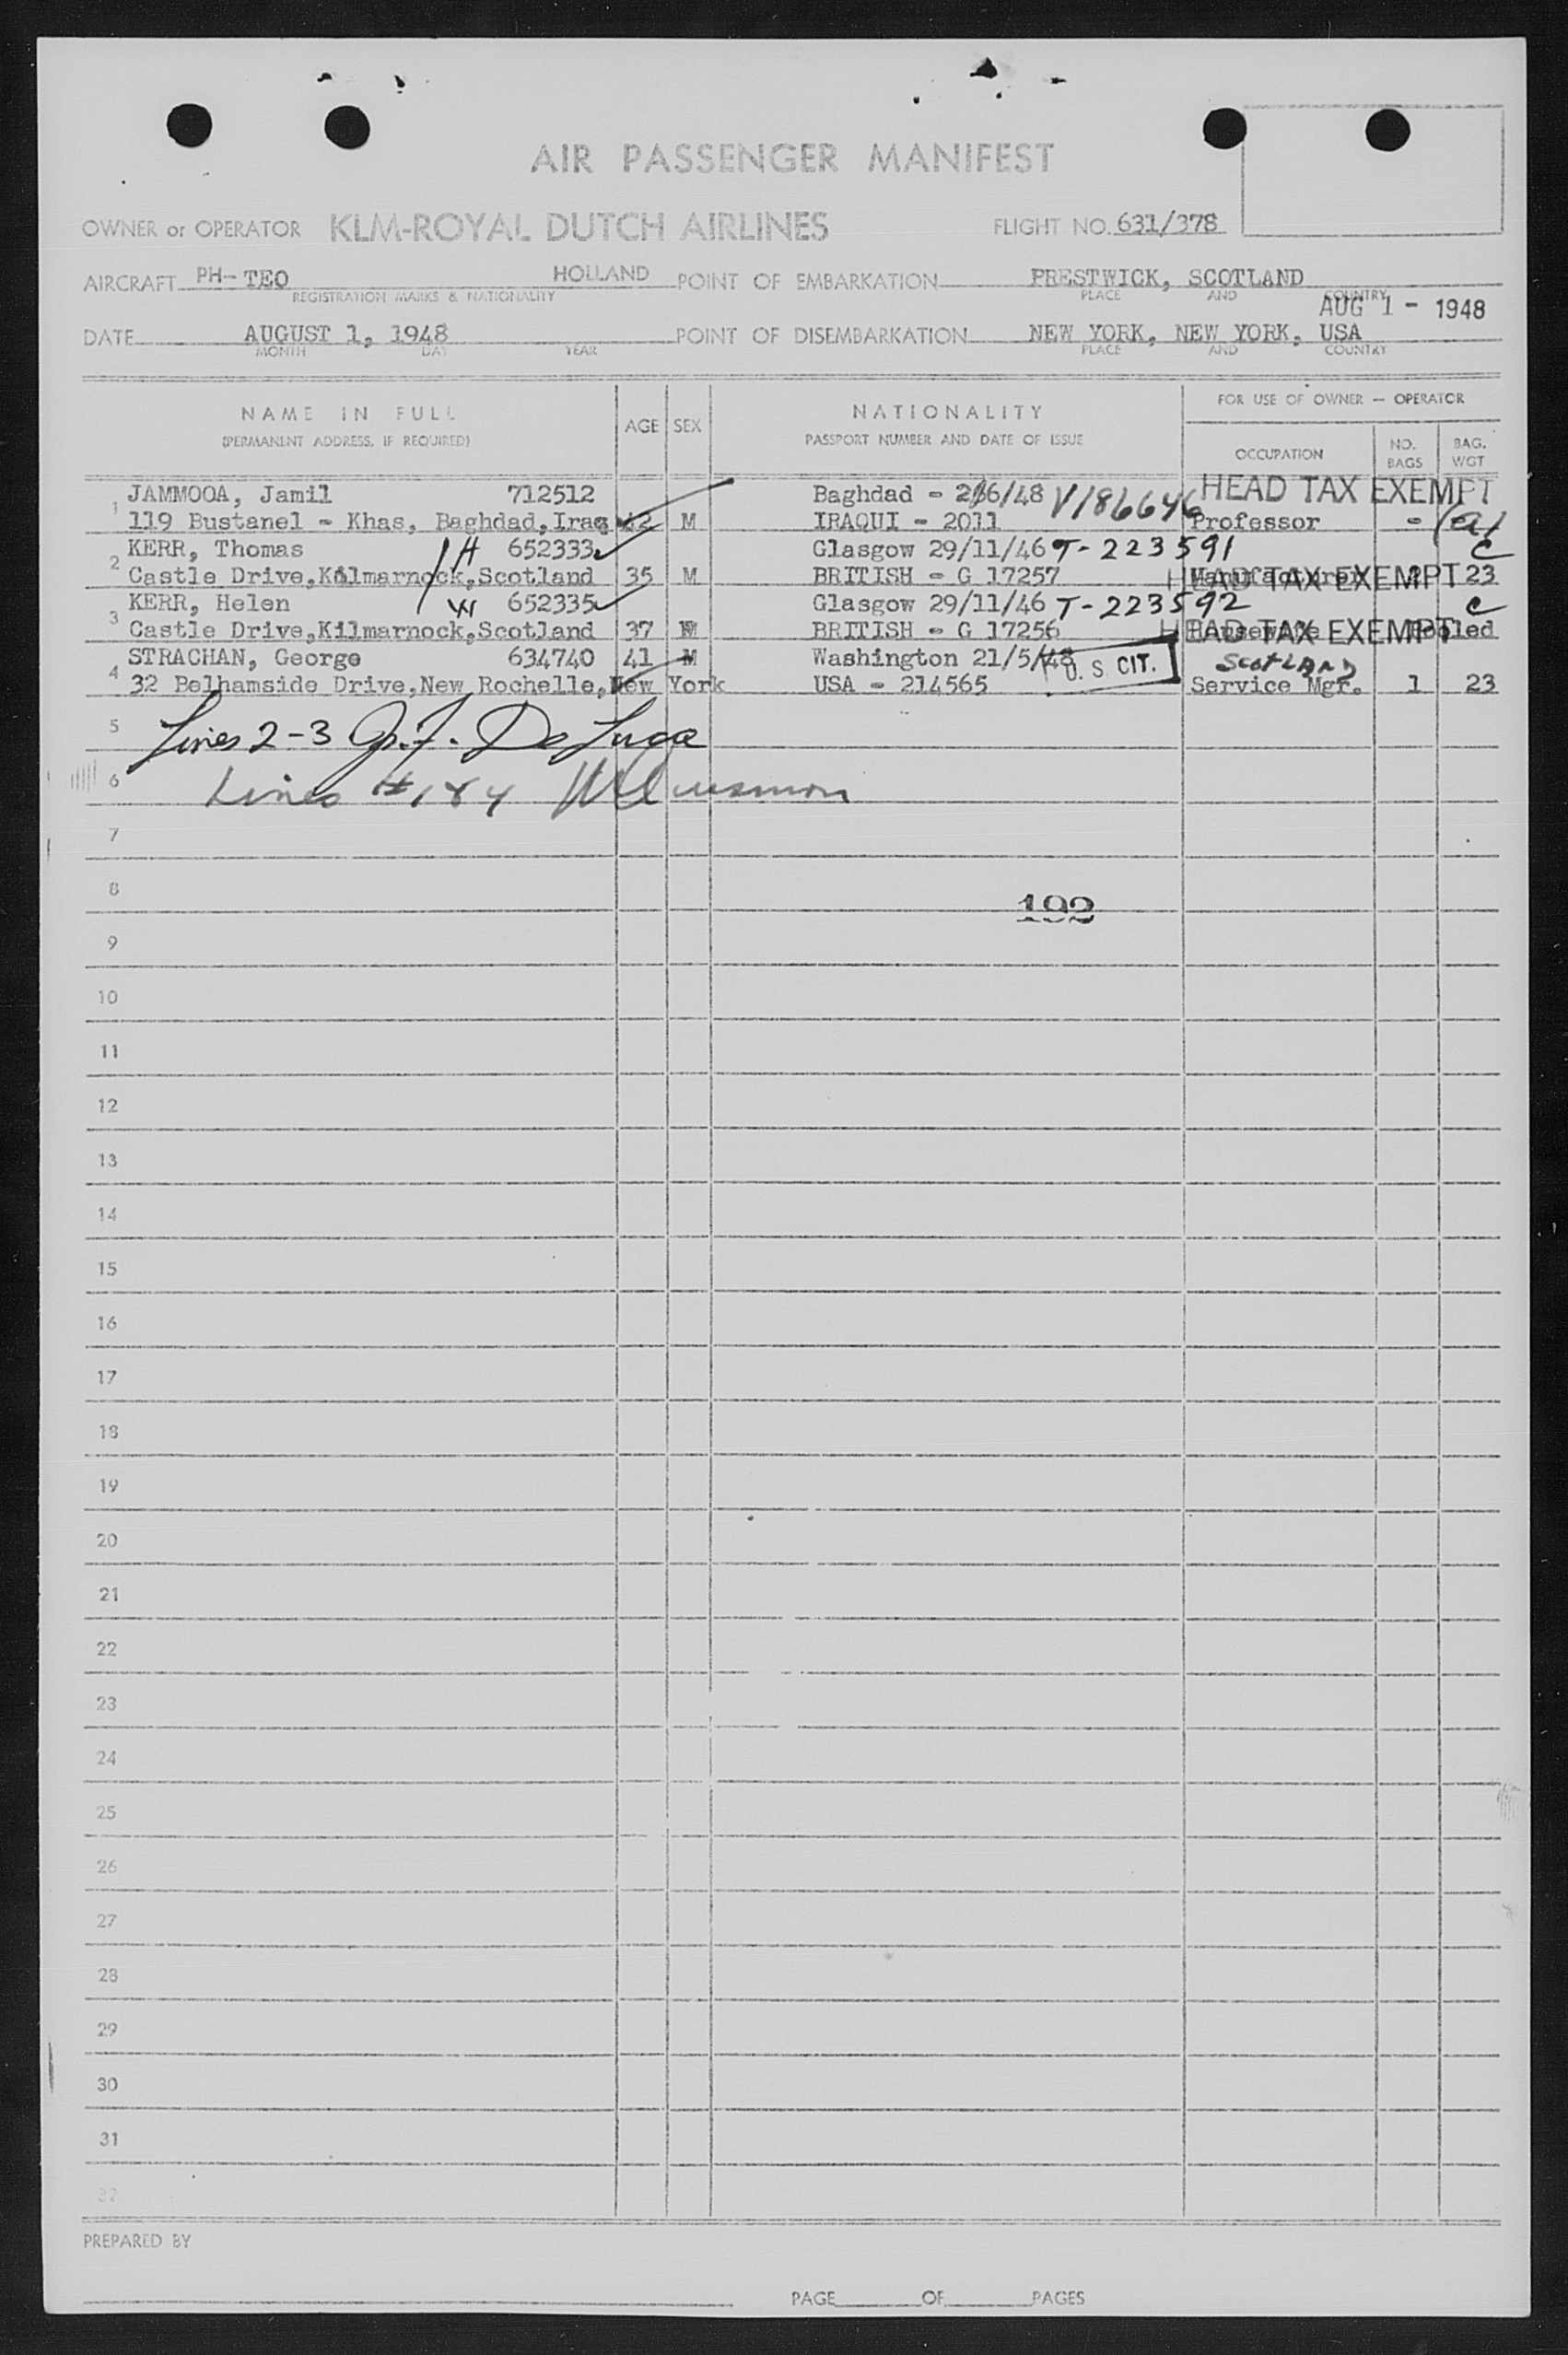 AIR PASSENGER MANIFEST
OWNER or OPERATOR KLM-ROYAL DUTCH AIRLINES FLIGHT NO. 631/378
AIRCRAFT PH-TEO HOLLAND POINT OF EMBARKATION PRESTWICK, SCOTLAND
REGISTRATION MARKS & NATIONALITY PLACE AND COUNTRY
AUG 1 - 1948
DATE AUGUST 1, 1948 POINT OF DISEMBARKATION NEW YORK, NEW YORK, USA
MONTH DAY YEAR PLACE AND COUNTRY
NAME IN FULL AGE SEX NATIONALITY FOR USE OF OWNER — OPERATOR
(PERMANENT ADDRESS, IF REQUIRED) PASSPORT NUMBER AND DATE OF ISSUE OCCUPATION NO. BAGS BAG. WGT
1 JAMMOOA, Jamil 712512 Baghdad - 6/48 V186646 HEAD TAX EXEMPT
119 Bustanel - Khas, Baghdad, Iraq M IRAQUI - 2011 Professor - (a)
2 KERR, Thomas H 652333 Glasgow 29/11/46 T-223591 C
Castle Drive, Kilmarnock, Scotland 35 M BRITISH - G 17257 HEAD TAX EXEMPT 23
3 KERR, Helen W 652335 Glasgow 29/11/46 T-223592 C
Castle Drive, Kilmarnock, Scotland 37 BRITISH - G 17256 HEAD TAX EXEMPT
4 STRACHAN, George 634740 41 M Washington 21/5/48 U. S. CIT. SCOTLAND
32 Belhamside Drive, New Rochelle, New York USA - 214565 Service Mgr. 1 23
5 Lines 2-3 De Luca
6 Lines #1 & 4
7
8 192
9
10
11
12
13
14
15
16
17
18
19
20
21
22
23
24
25
26
27
28
29
30
31
32
PREPARED BY
PAGE OF PAGES